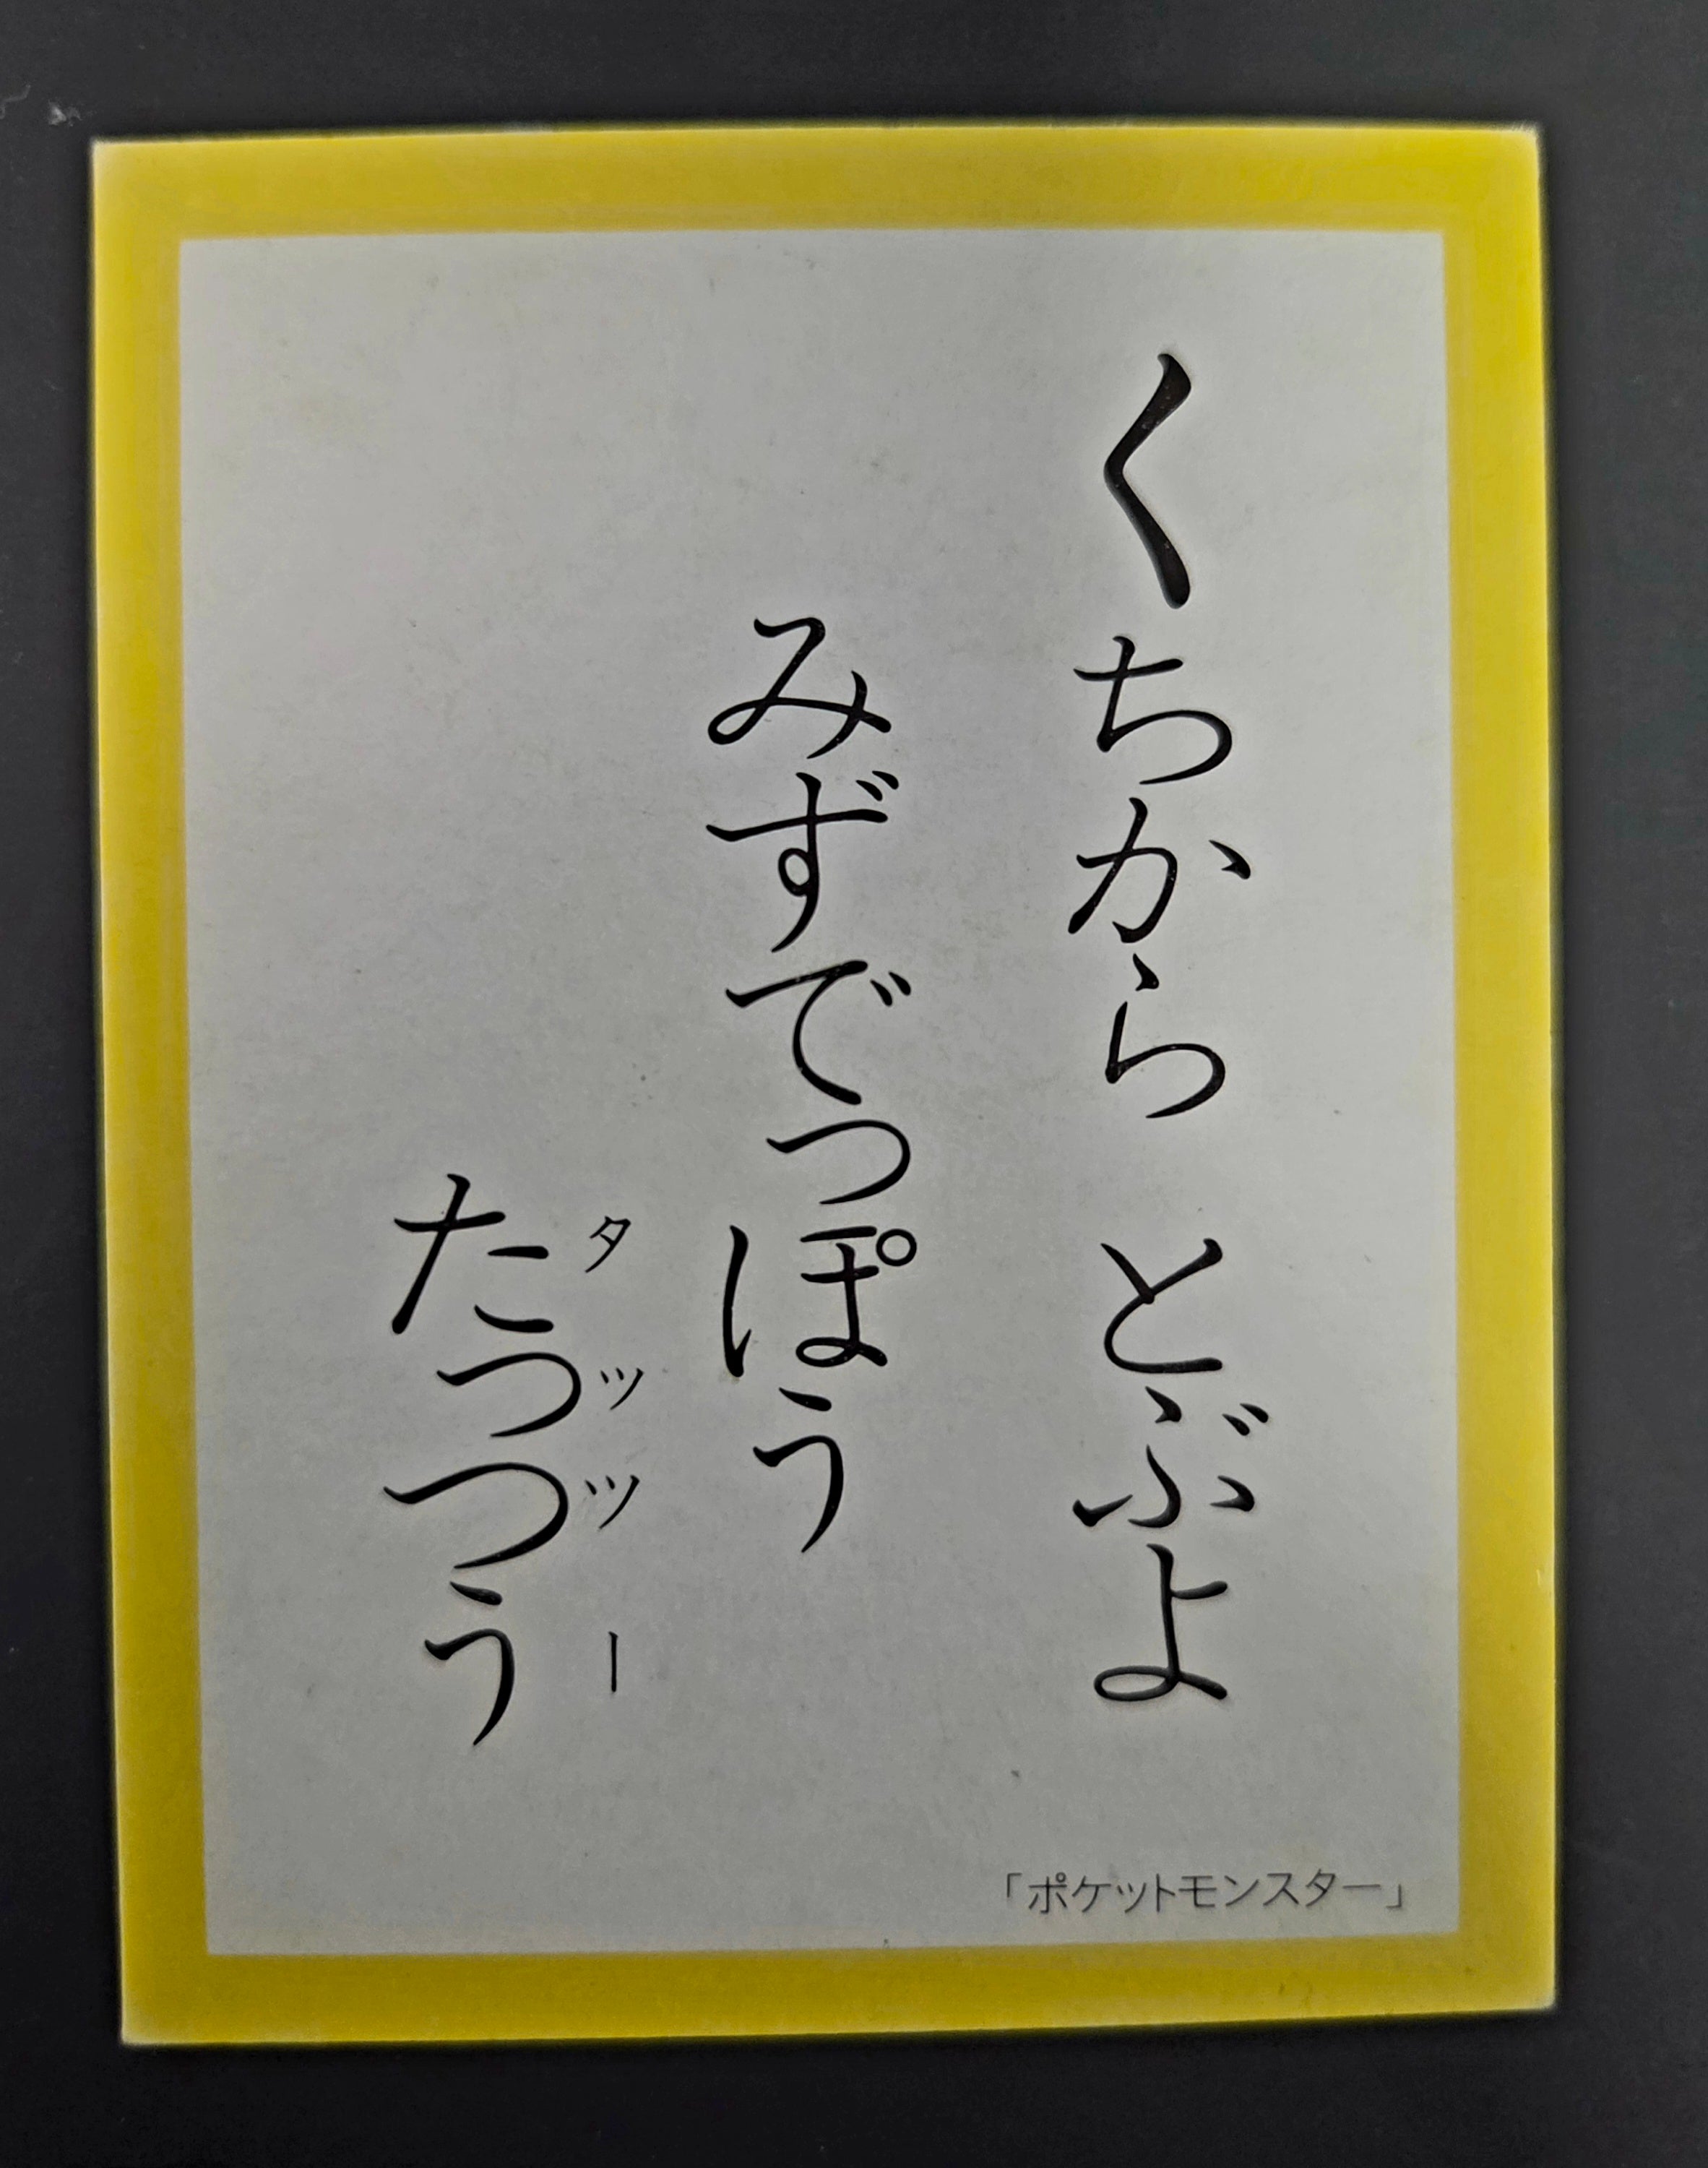 くちから とぶよ
みずでっぽう
たっつう
タッツー
「ポケットモンスター」